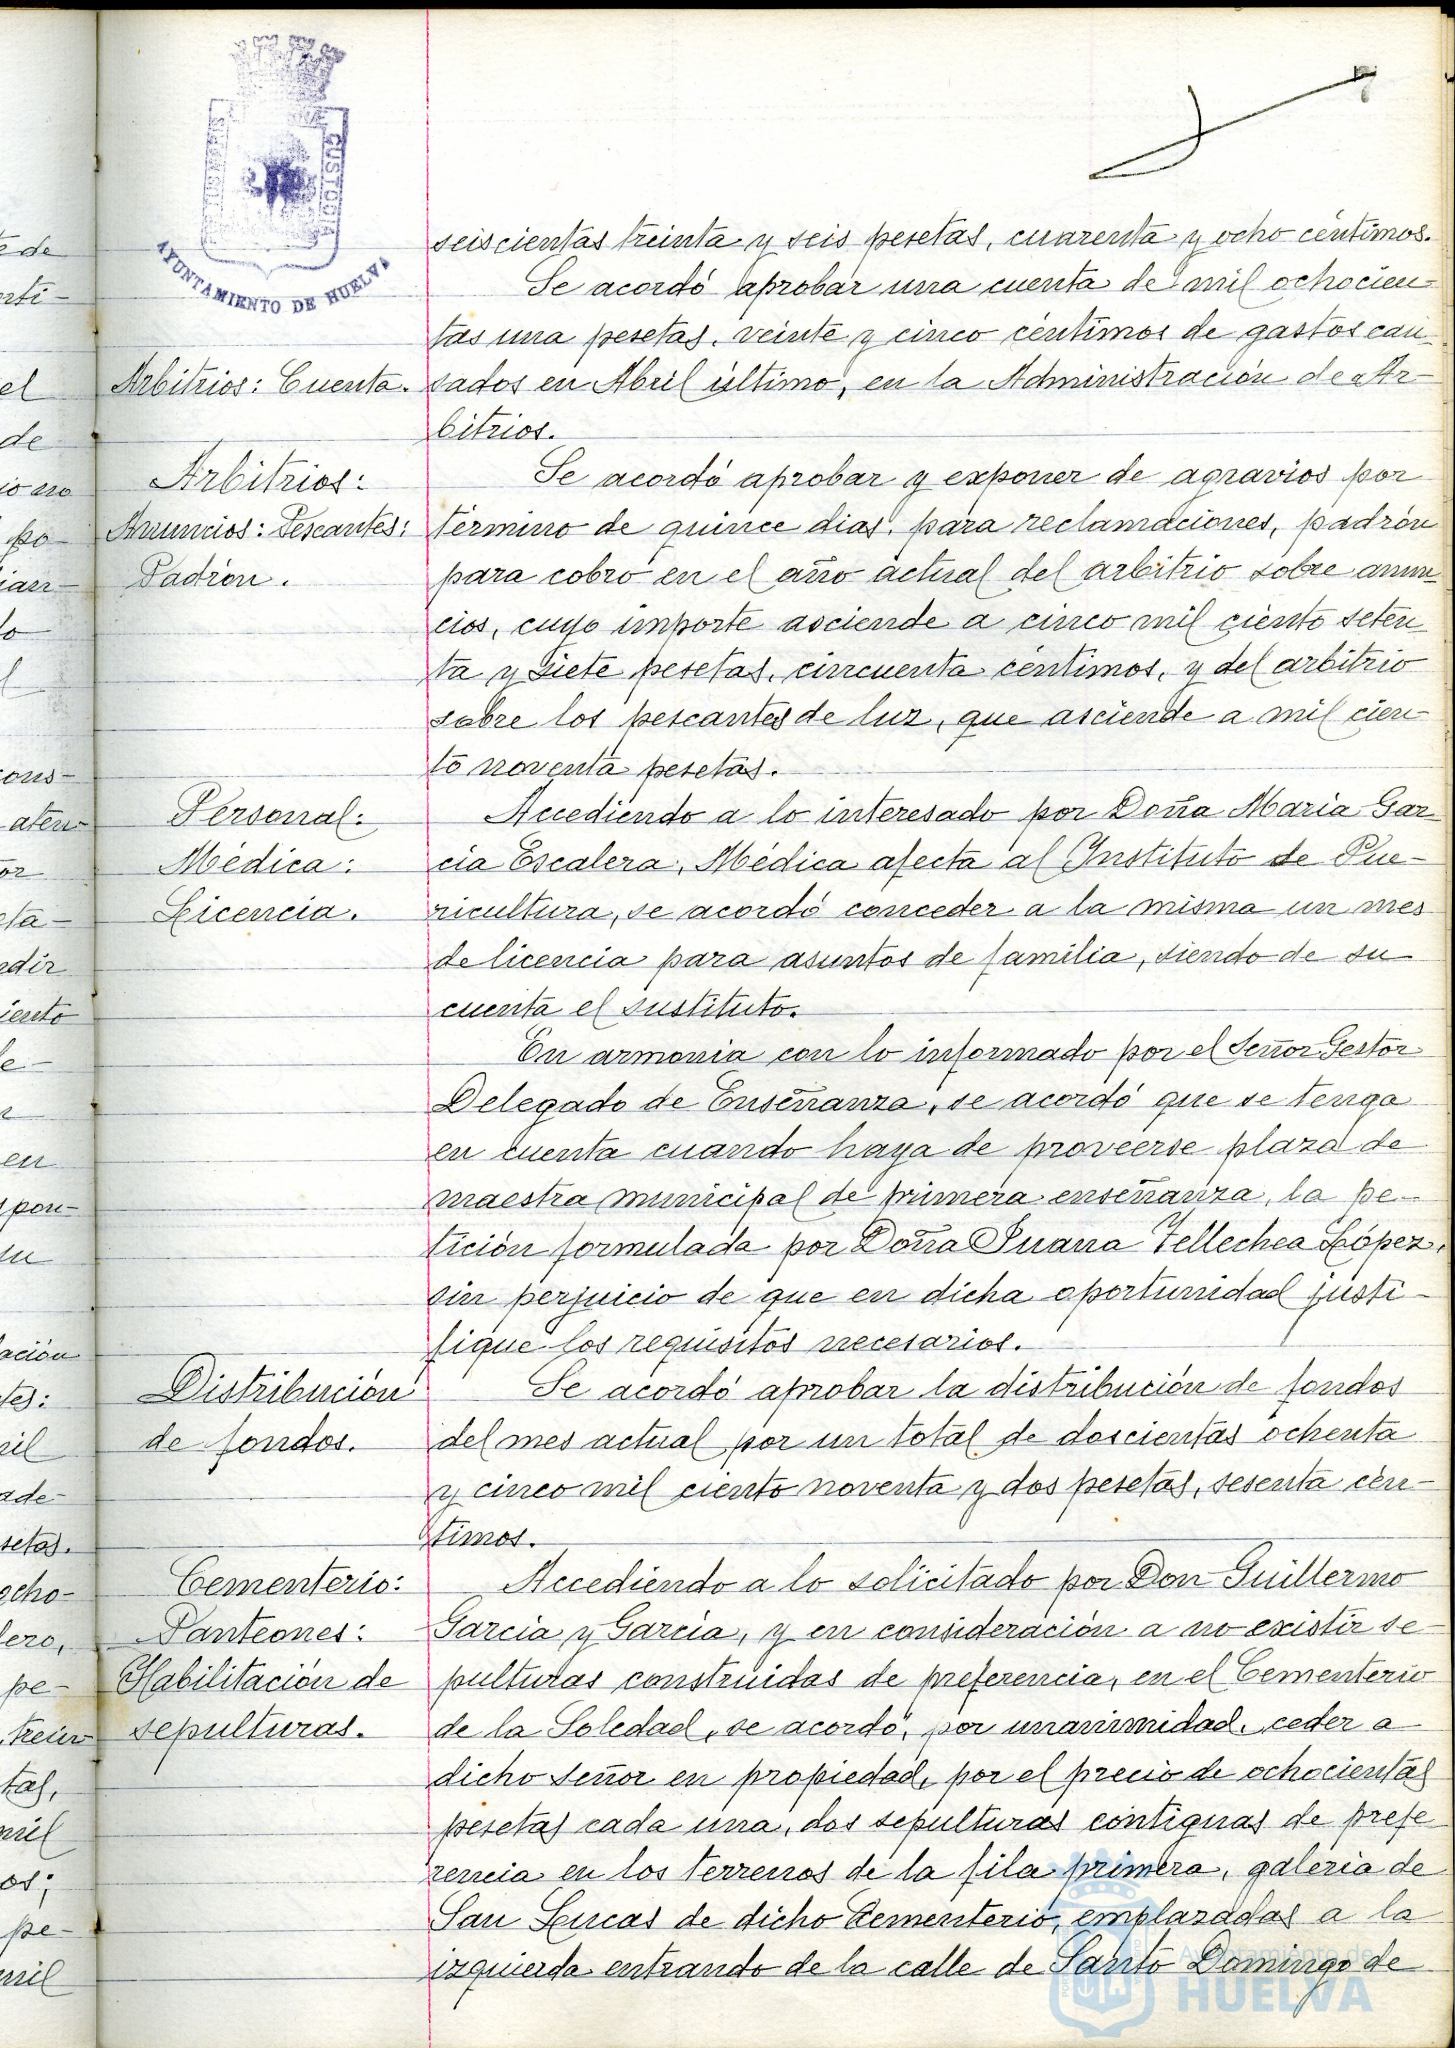 7
CUSTODIA
AYUNTAMIENTO DE HUELVA
seiscientas treinta y seis pesetas, cuarenta y ocho céntimos.
Se acordó aprobar una cuenta de mil ochocien-
tas una pesetas, veinte y cinco céntimos de gastos cau-
Arbitrios: Cuenta.
sados en Abril último, en la Administración de Ar-
bitrios.
Arbitrios:
Anuncios: Pescantes:
Padrón.
Se acordó aprobar y exponer de agravios por
término de quince dias, para reclamaciones, padrón
para cobro en el año actual del arbitrio sobre anun-
cios, cuyo importe asciende a cinco mil ciento seten-
ta y siete pesetas, cincuenta céntimos, y del arbitrio
sobre los pescantes de luz, que asciende a mil cien-
to noventa pesetas.
Personal:
Médica:
Licencia.
Accediendo a lo interesado por Doña Maria Gar-
cia Escalera, Médica afecta al Instituto de Pue-
ricultura, se acordó conceder a la misma un mes
de licencia para asuntos de familia, siendo de su
cuenta el sustituto.
En armonia con lo informado por el Señor Gestor
Delegado de Enseñanza, se acordó que se tenga
en cuenta cuando haya de proveerse plaza de
maestra municipal de primera enseñanza, la pe-
tición formulada por Doña Juana Tellechea López,
sin perjuicio de que en dicha oportunidad justi-
fique los requisitos necesarios.
Distribución
de fondos.
Se acordó aprobar la distribución de fondos
del mes actual por un total de doscientas ochenta
y cinco mil ciento noventa y dos pesetas, sesenta cén-
timos.
Cementerio:
Panteones:
Habilitación de
sepulturas.
Accediendo a lo solicitado por Don Guillermo
Garcia y Garcia, y en consideración a no existir se-
pulturas construidas de preferencia, en el Cementerio
de la Soledad, se acordó, por unanimidad, ceder a
dicho señor en propiedad, por el precio de ochocientas
pesetas cada una, dos sepulturas contiguas de prefe
rencia en los terrenos de la fila primera, galeria de
San Lucas de dicho Cementerio, emplazadas a la
izquierda entrando de la calle de Santo Domingo de
Ayuntamiento de
HUELVA